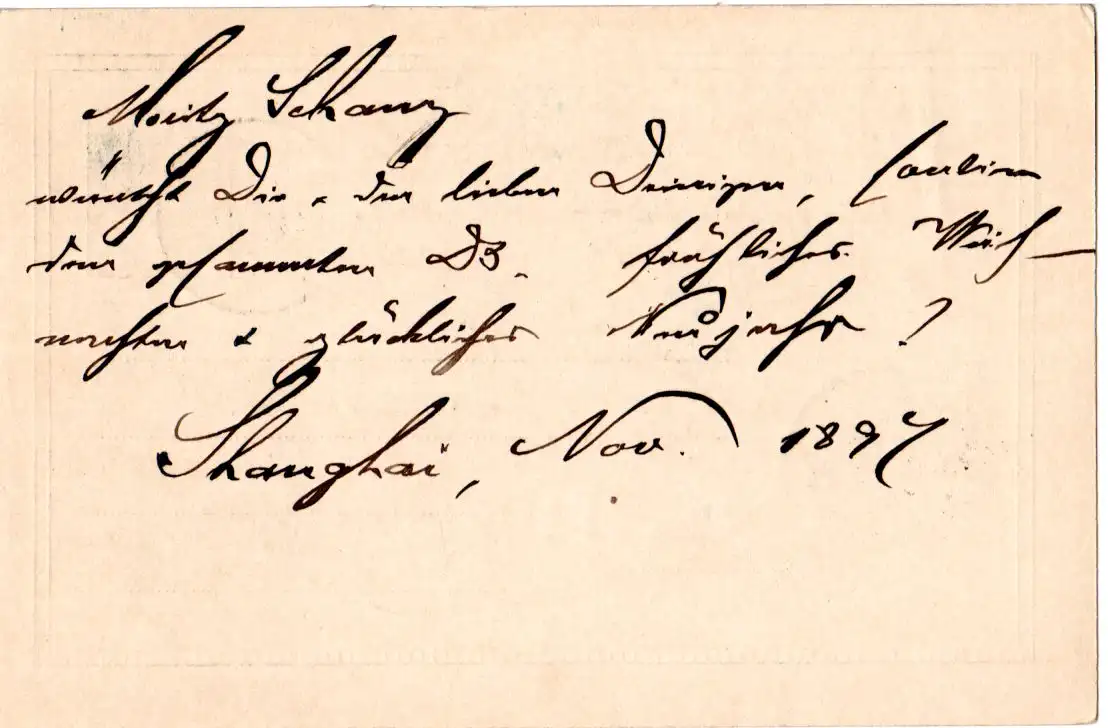 Moritz Schanz
wünscht Dir & den lieben Deinigen, sowie
dem gesammten DB. fröhliches Weih-
nachten & glückliches Neujahr!
Shanghai, Nov. 1897